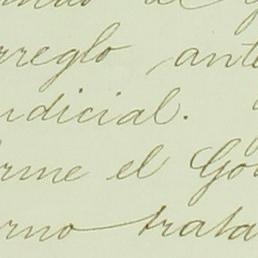 rreglo ante
udicial.
rme el Go
rno trata